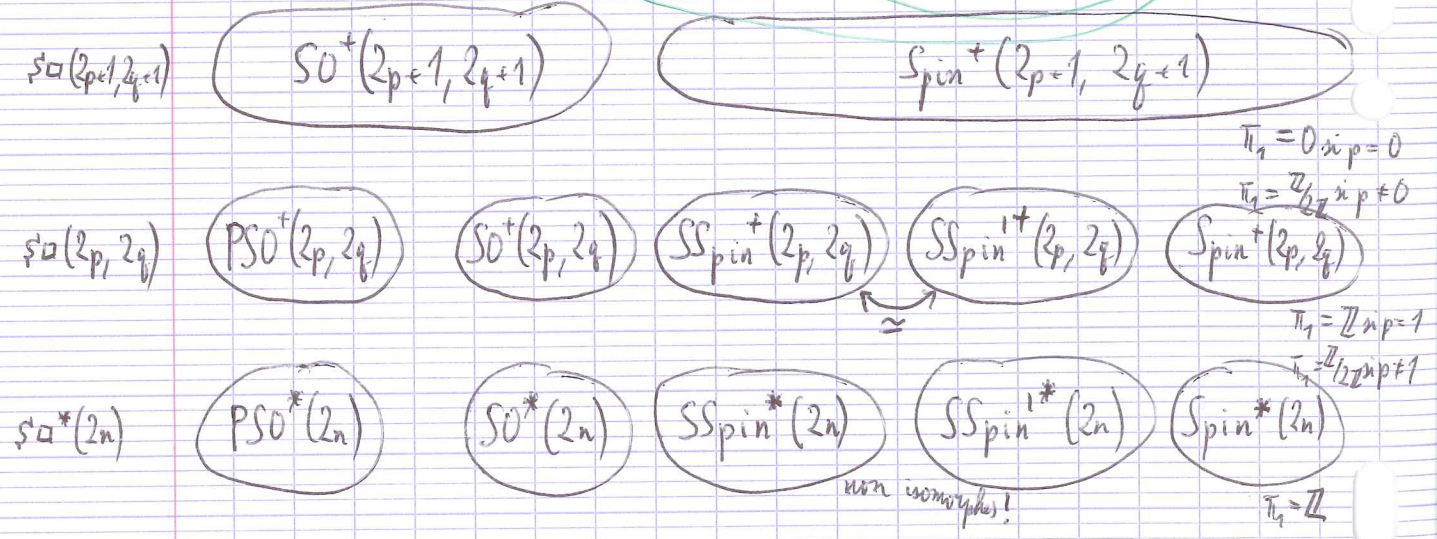 𝔰𝔬(2p+1, 2q+1) SO⁺(2p+1, 2q+1) Spin⁺(2p+1, 2q+1)
π₁ = 0 si p = 0
π₁ = ℤ/2ℤ si p ≠ 0
𝔰𝔬(2p, 2q) PSO⁺(2p, 2q) SO⁺(2p, 2q) SSpin⁺(2p, 2q) SSpin'⁺(2p, 2q) Spin⁺(2p, 2q)
≃
π₁ = ℤ si p = 1
π₁ = ℤ/2ℤ si p ≠ 1
𝔰𝔬*(2n) PSO*(2n) SO*(2n) SSpin*(2n) SSpin'*(2n) Spin*(2n)
non isomorphes!
π₁ = ℤ